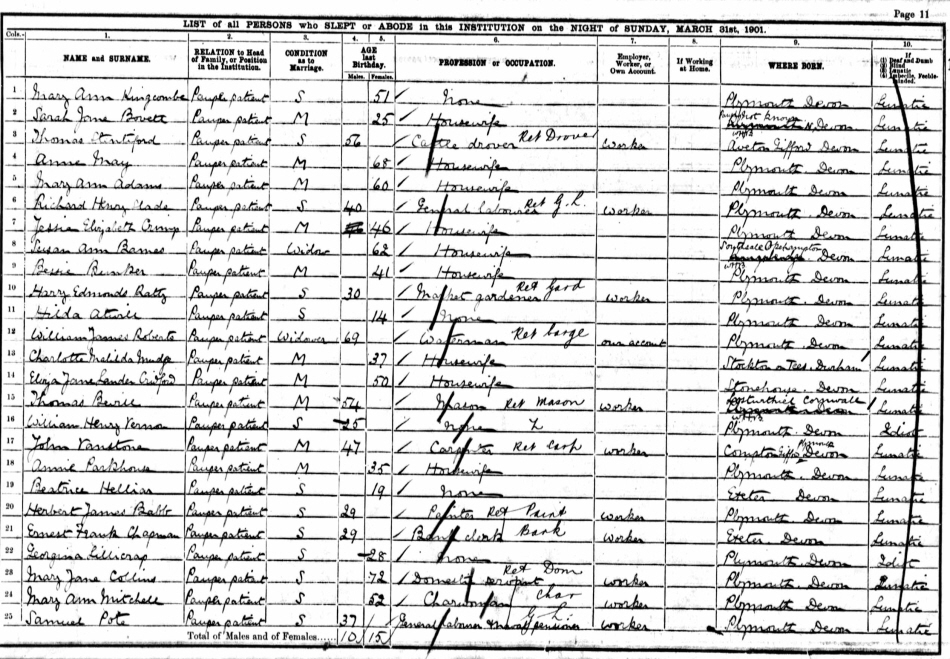 Page 11
LIST of all PERSONS who SLEPT or ABODE in this INSTITUTION on the NIGHT of SUNDAY, MARCH 31st, 1901.
Cols. 1. 2. 3. 4. 5. 6. 7. 8. 9. 10.
NAME and SURNAME. RELATION to Head of Family, or Position in the Institution. CONDITION as to Marriage. AGE last Birthday. Males. Females. PROFESSION or OCCUPATION. Employer, Worker, or Own Account. If Working at Home. WHERE BORN. (1) Deaf and Dumb (2) Blind (3) Lunatic (4) Imbecile, Feeble-minded.
1 Mary Ann Kingcombe Pauper patient S 51 None Plymouth Devon Lunatic
2 Sarah Jane Bovett Pauper patient M 25 Housewife N. Devon Lunatic
3 Thomas Pauper patient S 56 Cattle drover Ret Drover worker Aveton Gifford Devon Lunatic
4 Annie May Pauper patient M 68 Housewife Plymouth Devon Lunatic
5 Mary Ann Adams Pauper patient M 60 Housewife Plymouth Devon Lunatic
6 Richard Henry Pauper patient S 40 General labourer Ret G.L. worker Plymouth Devon Lunatic
7 Jessie Elizabeth Pauper patient M 46 Housewife Plymouth Devon Lunatic
8 Susan Ann Barnes Pauper patient Widow 62 Housewife Devon Lunatic
9 Bessie Bunker Pauper patient M 41 Housewife Plymouth Devon Lunatic
10 Harry Edmonds Pauper patient S 30 Market gardener Ret Gard worker Plymouth Devon Lunatic
11 Hilda Pauper patient S 14 None Plymouth Devon Lunatic
12 William James Roberts Pauper patient Widower 69 Waterman Ret barge own account Plymouth Devon Lunatic
13 Charlotte Malinda Mudge Pauper patient M 37 Housewife Stockton on Tees. Durham Lunatic
14 Eliza Jane Pauper patient M 50 Housewife Stonehouse Devon Lunatic
15 Thomas Pauper patient M 54 Mason Ret Mason worker Cornwall Lunatic
16 William Henry Vernon Pauper patient S 25 none X Plymouth Devon Idiot
17 John Vanstone Pauper patient M 47 Carpenter Ret Carp worker Compton Gifford Plymouth Devon Lunatic
18 Annie Parkhouse Pauper patient M 35 Housewife Plymouth Devon Lunatic
19 Beatrice Pauper patient S 19 None Exeter Devon Lunatic
20 Herbert James Babb Pauper patient S 29 Painter Ret Paint worker Plymouth Devon Lunatic
21 Ernest Frank Chapman Pauper patient S 29 Bank clerk Bank worker Plymouth Devon Lunatic
22 Georgina Lillicrap Pauper patient S 28 none Plymouth Devon Idiot
23 Mary Jane Collins Pauper patient S 72 Domestic servant Ret Dom worker Plymouth Devon Lunatic
24 Mary Ann Mitchell Pauper patient S 52 Charwoman Char worker Plymouth Devon Lunatic
25 Samuel Pote Pauper patient S 37 General labourer & naval pensioner G L worker Plymouth Devon Lunatic
Total of Males and of Females...... 10 15